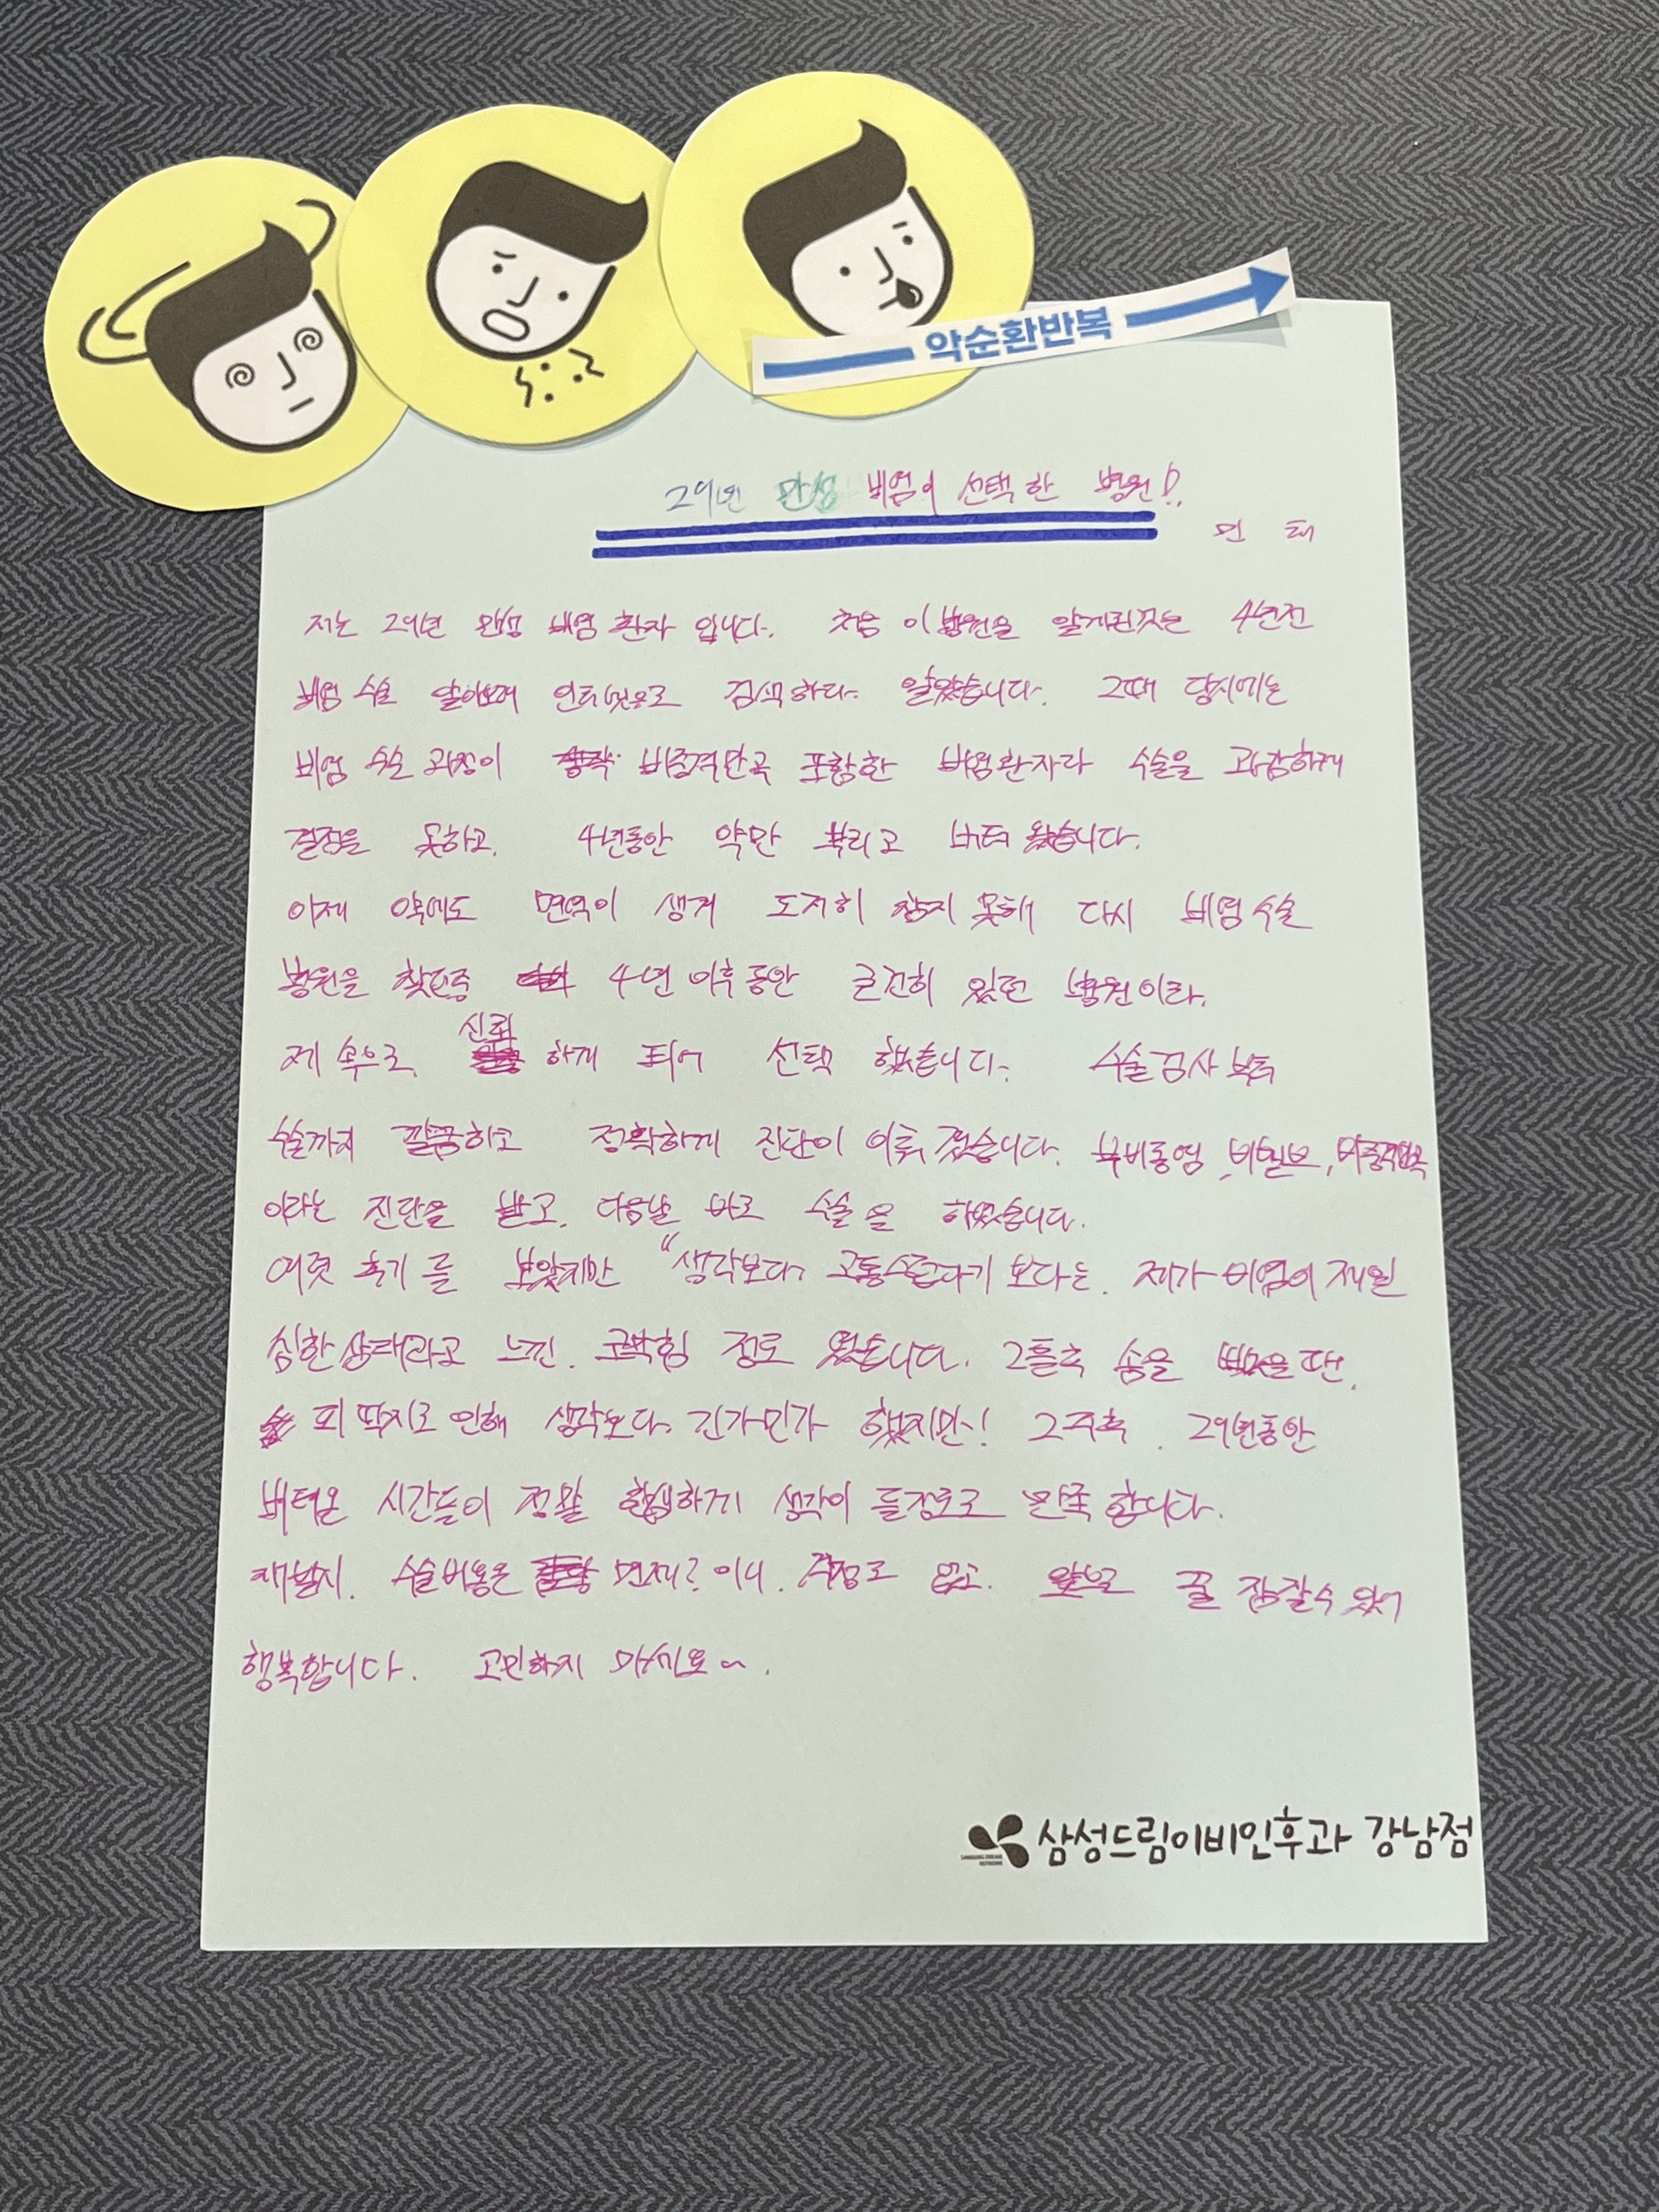 악순환반복
29년 만성 비염이 선택한 병원!!
민 태
저는 29년 만성 비염 환자 입니다. 처음 이 병원을 알게된것은 4년전
비염 수술 알아보며 인터넷으로 검색하다 알았습니다. 그때 당시에는
비염 수술 과정이 비중격만곡 포함한 비염환자라 수술을 과감하게
결정을 못하고. 4년동안 약만 뿌리고 버텨 왔습니다.
이제 약에도 면역이 생겨 도저히 참지 못해 다시 비염수술
병원을 찾던중 4년 이후 동안 굳건히 있던 병원이라.
제 속으로. 신뢰 하게 되어 선택 했습니다. 수술검사 부터
수술까지 깔끔하고 정확하게 진단이 이뤄졌습니다. 부비동염, 비밸브, 비중격만곡
이라는 진단을 받고. 다음날 바로 수술을 하였습니다.
여럿 후기를 보았지만 "생각보다 고통스럽다기 보다는. 제가 비염이 제일
심한상태라고 느낀. 코막힘 정도 였습니다. 2틀후 솜을 뺐을땐.
피 딱지로 인해 생각보다 긴가민가 했지만! 2주후. 29년동안
버텨온 시간들이 정말 생각이 들정도로 만족 합니다.
재발시. 수술비용은 면제? 이니. 걱정도 없고. 앞으로 꿀 잠잘수 있어
행복합니다. 고민하지 마세요~.
삼성드림이비인후과 강남점